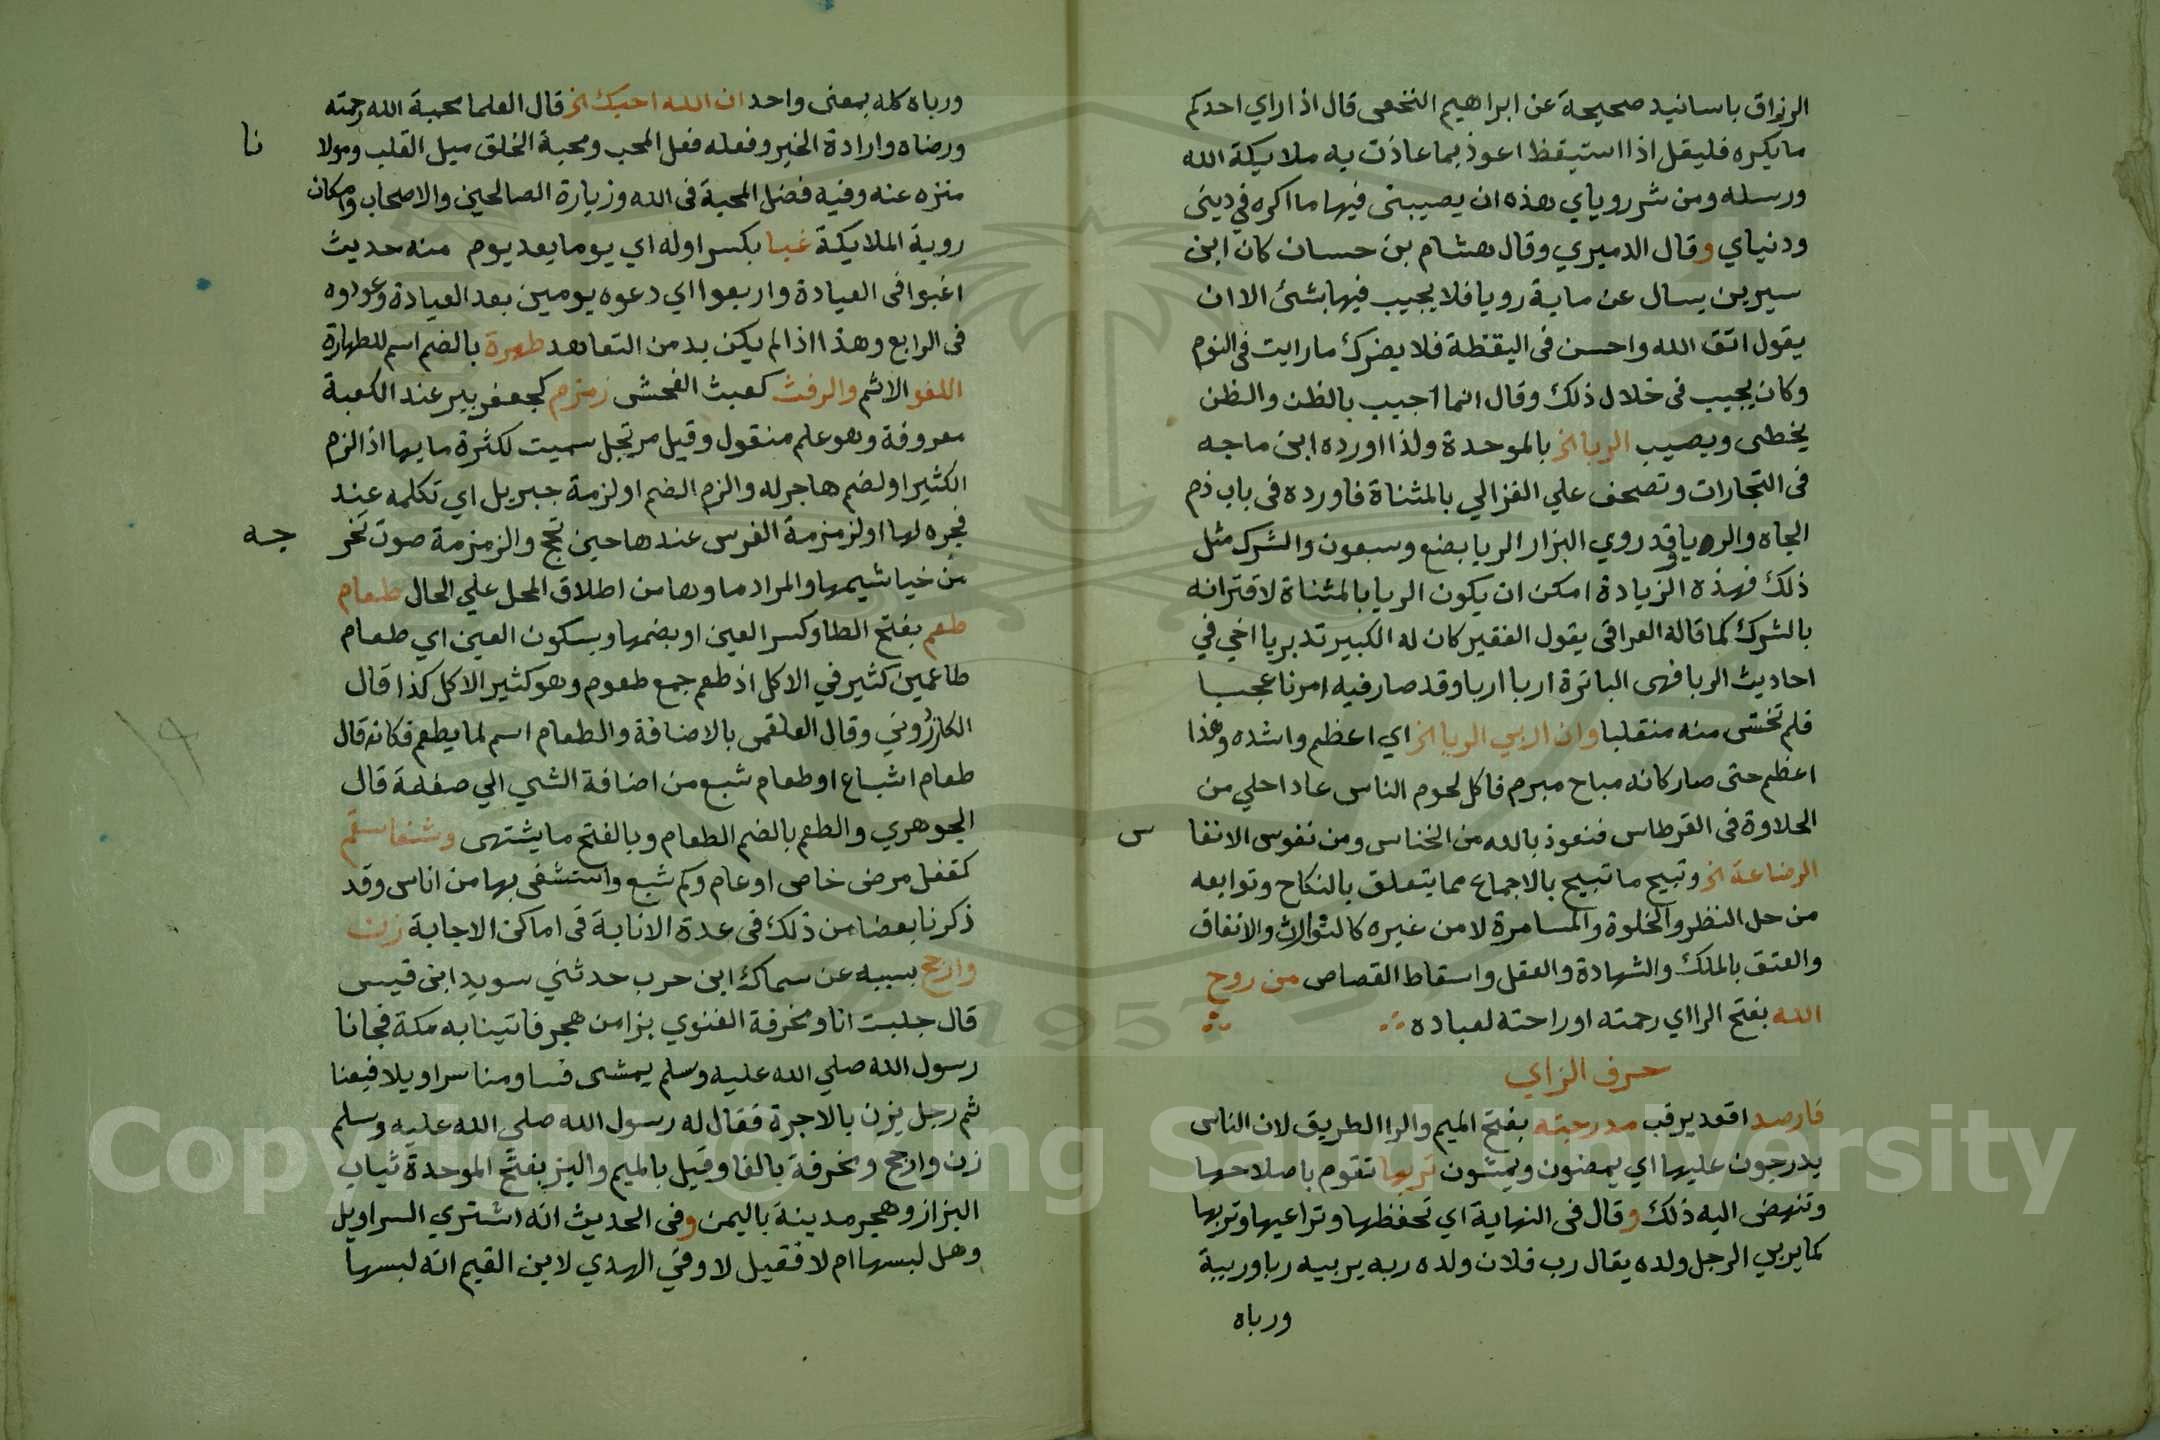 الرزاق باسانيد صحيحة عن ابراهيم النخعي قال اذا راي احدكم
ما يكره فليقل اذا استيقظ اعوذ بما عاذت به ملايكة الله
ورسله ومن شر روياي هذه ان يصيبني فيها ما اكره في ديني
ودنياي وقال الدميري وقال هشام بن حسان كان ابن
سيرين يسال عن ماية رويا فلا يجيب فيها بشئ الا ان
يقول اتق الله واحسن في اليقظة فلا يضرك ما رايت في النوم
وكان يجيب في خلال ذلك وقال انما اجيب بالظن والظن
يخطي ويصيب الربا الخ بالموحدة ولذا اورده ابن ماجه
في التجارات وتصحف علي الغزالي بالمثناة فاورده في باب ذم
الجاه والريا وقد روي البزار الريا بضع وسبعون والشرك مثل
ذلك فهذه الزيادة امكن ان يكون الريا بالمثناة لاقترانه
بالشرك كما قاله العراقي يقول الفقير كان له الكبير تدبر يا اخي في
احاديث الربا فهي الباترة اربا اربا وقد صار فيه امرنا عجبا
فلم تخش منه منقلبا وان اربي الربا الخ اي اعظم واشده وهذا
اعظم حتى صار كانه مباح مبرم فاكل لحوم الناس عاد احلي من
الحلاوة في القرطاس فنعوذ بالله من الخناس ومن نفوس الانفا
س
الرضاعة الخ وتبيح ما تبيح بالاجماع مما يتعلق بالنكاح وتوابعه
من حل النظر والخلوة والمسامرة لا من غيره كالتوارث والانفاق
والعتق بالملك والشهادة والعقل واسقاط القصاص من روح
الله بفتح الرا اي رحمته او راحته لعباده
حرف الزاي
فارصد اقعد يرقب مدرجته بفتح الميم والرا الطريق لان الناس
يدرجون عليها اي يمضون ويمشون تربها تقوم باصلاحها
وتنهض اليه ذلك وقال في النهاية اي تحفظها وتراعيها وتربها
كما يربي الرجل ولده يقال رب فلان ولده ربه يربيه ربا وربية
ورباه
ورباه كله بمعنى واحد ان الله احبك الخ قال العلما محبة الله رحمته
ورضاه وارادة الخير وفعله فعل المحب ومحبة الخلق ميل القلب ومولا
نا
منزه عنه وفيه فضل المحبة في الله وزيارة الصالحين والاصحاب وامكان
روية الملايكة غبا بكسر اوله اي يوما بعد يوم منه حديث
اغبوا في العيادة واربعوا اي دعوه يومين بعد العيادة وعودوه
في الرابع وهذا اذا لم يكن بد من التعاهد طهرة بالضم اسم للطهارة
اللغو الاثم والرفث كعبث الفحش زمزم كجعفر بير عند الكعبة
معروفة وهو علم منقول وقيل مرتجل سميت لكثرة مايها اذ الزم
الكثير او لضم هاجر له والزم الضم او لزمة جبريل اي تكلمه عند
فجره لها او لزمزمة الفرس عندها حين تحج والزمزمة صوت تخر
جه
من خياشيمها والمراد ماوها من اطلاق المحل علي الحال طعام
طعم بفتح الطا وكسر العين او بضمها وبسكون العين اي طعام
طاعمين كثير في الاكل اذ طعم جمع طعوم وهو كثير الاكل كذا قال
الكازروني وقال العلقمي بالاضافة والطعام اسم لما يطعم فكانه قال
طعام اشباع او طعام شبع من اضافة الشي الي صفته قال
الجوهري والطعم بالضم الطعام وبالفتح ما يشتهى وشفا سقم
كقفل مرض خاص او عام وكم شبع واستشفى بها من اناس وقد
ذكرنا بعضا من ذلك في عدة الانابة في اماكن الاجابة زن
وارجح بسببه عن سماك ابن حرب حدثني سويد ابن قيس
قال جلبت انا ومخرفة الغنوي بزا من هجر فاتينا به مكة فجانا
رسول الله صلي الله عليه وسلم يمشى فساومنا سراويلا فبعنا
ثم رجل يزن بالاجرة فقال له رسول الله صلي الله عليه وسلم
زن وارجح ومخرفة بالفا وقيل بالميم والبز بفتح الموحدة ثياب
البزاز وهجر مدينة باليمن وفي الحديث انه اشتري السراويل
وهل لبسها ام لا فقيل لا وفي الهدي لابن القيم انه لبسها
Copyright © King Saud University
1957